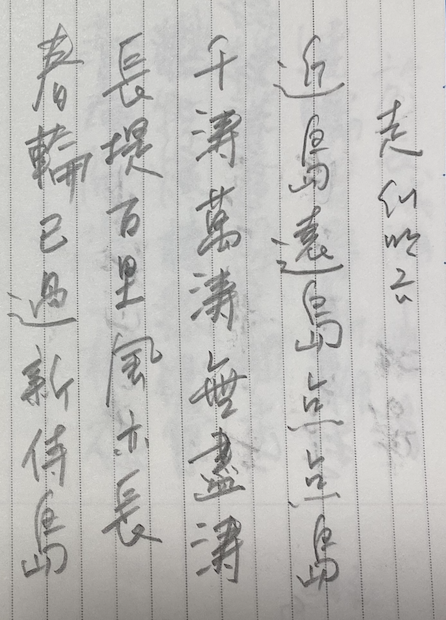 走
近島遠島点点島
千濤萬濤無盡濤
長堤百里風亦長
春輪已過新侍島